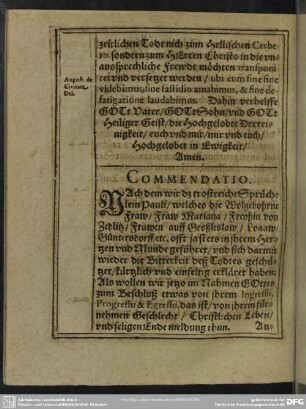 zeitlichen Todt nich zum Hellischen Cerbe-
ro, sondern zum HErren Christo in die vn-
aussprechliche Frewde möchten transponi-
ret vnd versetzet werden / ubi eum sine fine
videbimus, sine fastidio amabimus, & sine de-
fatigatione laudabimus. Dahin verhelffe
GOtt Vater / GOtt Sohn / vnd GOtt
Heiliger Geist / die Hochgelobte Dreyei-
nigkeit / euch vnd mir / mir vnd euch /
Hochgelobet in Ewigkeit /
Amen.
August. de
Civitate
Dei.
COMMENDATIO.
NAch dem wir dz trostreiche Sprüch-
lein Pauli / welches die Wolgebohrne
Fraw / Fraw Mariana / Freyhin von
Zedlitz / Frawen auff Großleslaw / Logaw /
Güntersdorff etc. offt ja stets in ihrem Her-
tzen vnd Munde geführet / vnd sich darmit
wieder die Bitterkeit deß Todtes geschü-
tzet / kürtzlich vnd einfeltig erkläret haben:
Als wollen wir jetzo im Nahmen GOttes
zum Beschluß etwas von ihrem Ingressu,
Progressu & Egressu, das ist / von ihrem
nehmen Geschlecht / Christlichen Leben /
vnd seligen Ende meldung thun.
An-